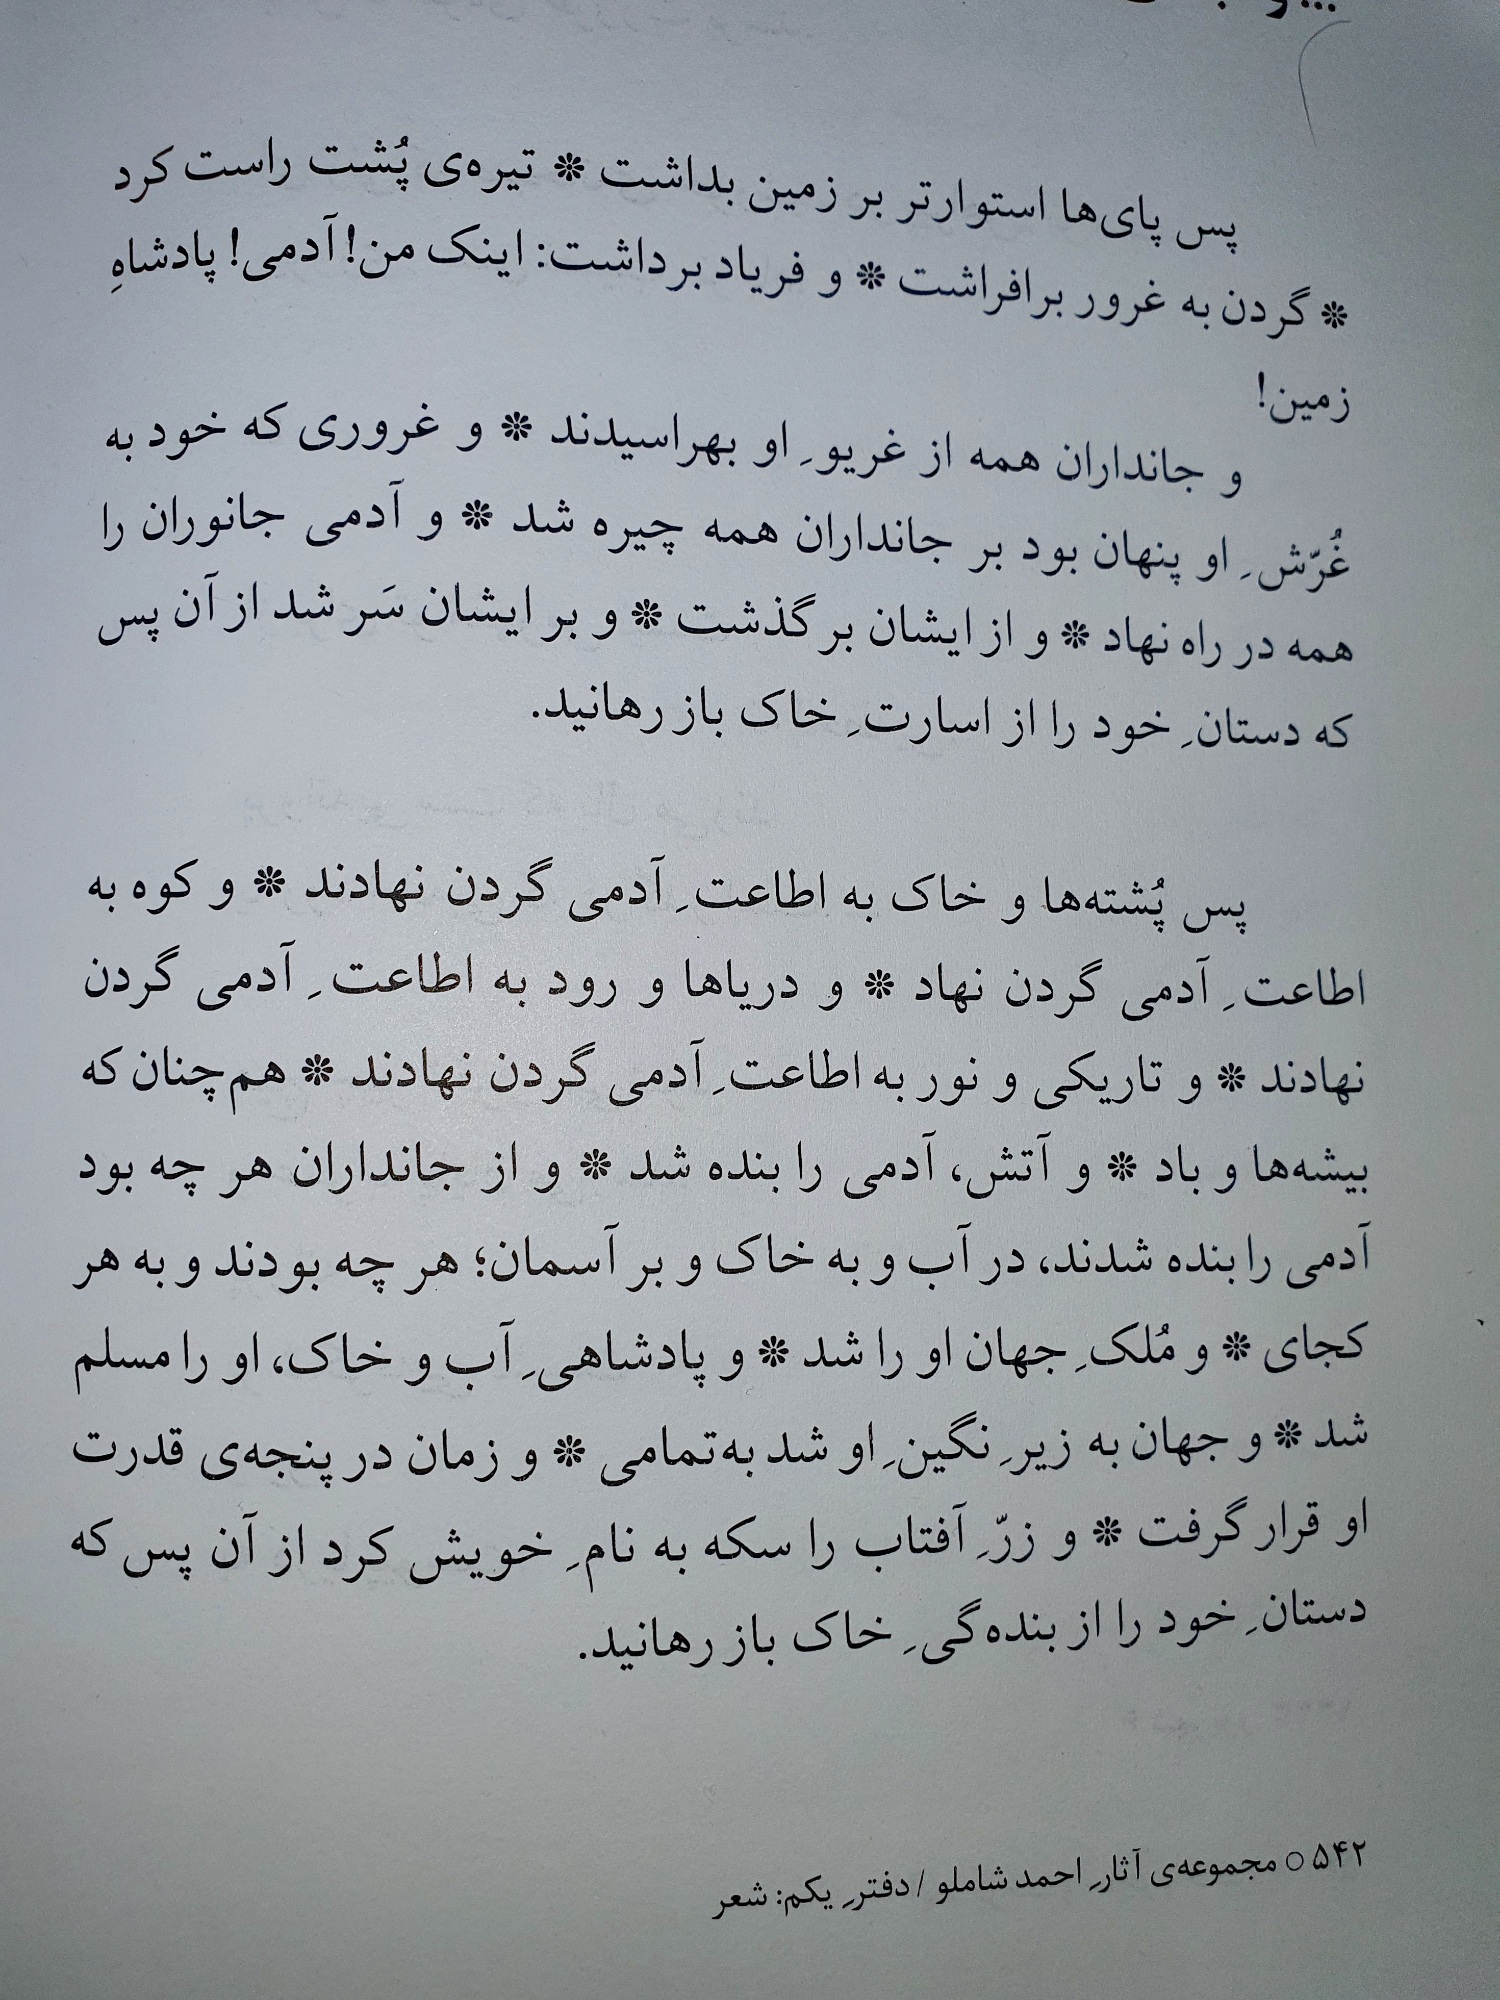 پس پای‌ها استوارتر بر زمین بداشت ❊ تیره‌ی پُشت راست کرد
❊ گردن به غرور برافراشت ❊ و فریاد برداشت: اینک من! آدمی! پادشاهِ
زمین!
و جانداران همه از غریوِ او بهراسیدند ❊ و غروری که خود به
غُرّشِ او پنهان بود بر جانداران همه چیره شد ❊ و آدمی جانوران را
همه در راه نهاد ❊ و از ایشان برگذشت ❊ و بر ایشان سَر شد از آن پس
که دستانِ خود را از اسارتِ خاک باز رهانید.
پس پُشته‌ها و خاک به اطاعتِ آدمی گردن نهادند ❊ و کوه به
اطاعتِ آدمی گردن نهاد ❊ و دریاها و رود به اطاعتِ آدمی گردن
نهادند ❊ و تاریکی و نور به اطاعتِ آدمی گردن نهادند ❊ هم‌چنان که
بیشه‌ها و باد ❊ و آتش، آدمی را بنده شد ❊ و از جانداران هر چه بود
آدمی را بنده شدند، در آب و به خاک و بر آسمان؛ هر چه بودند و به هر
کجای ❊ و مُلکِ جهان او را شد ❊ و پادشاهیِ آب و خاک، او را مسلم
شد ❊ و جهان به زیرِ نگینِ او شد به‌تمامی ❊ و زمان در پنجه‌ی قدرت
او قرار گرفت ❊ و زرِّ آفتاب را سکه به نامِ خویش کرد از آن پس که
دستانِ خود را از بنده‌گیِ خاک باز رهانید.
۵۴۲ ○ مجموعه‌ی آثارِ احمد شاملو / دفترِ یکم: شعر